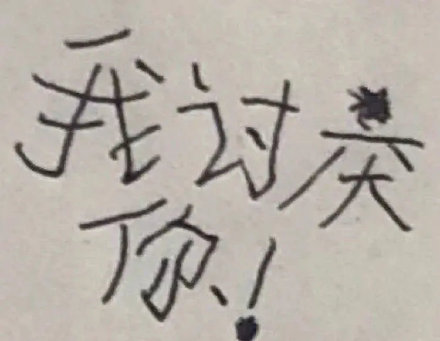 我讨厌
你！